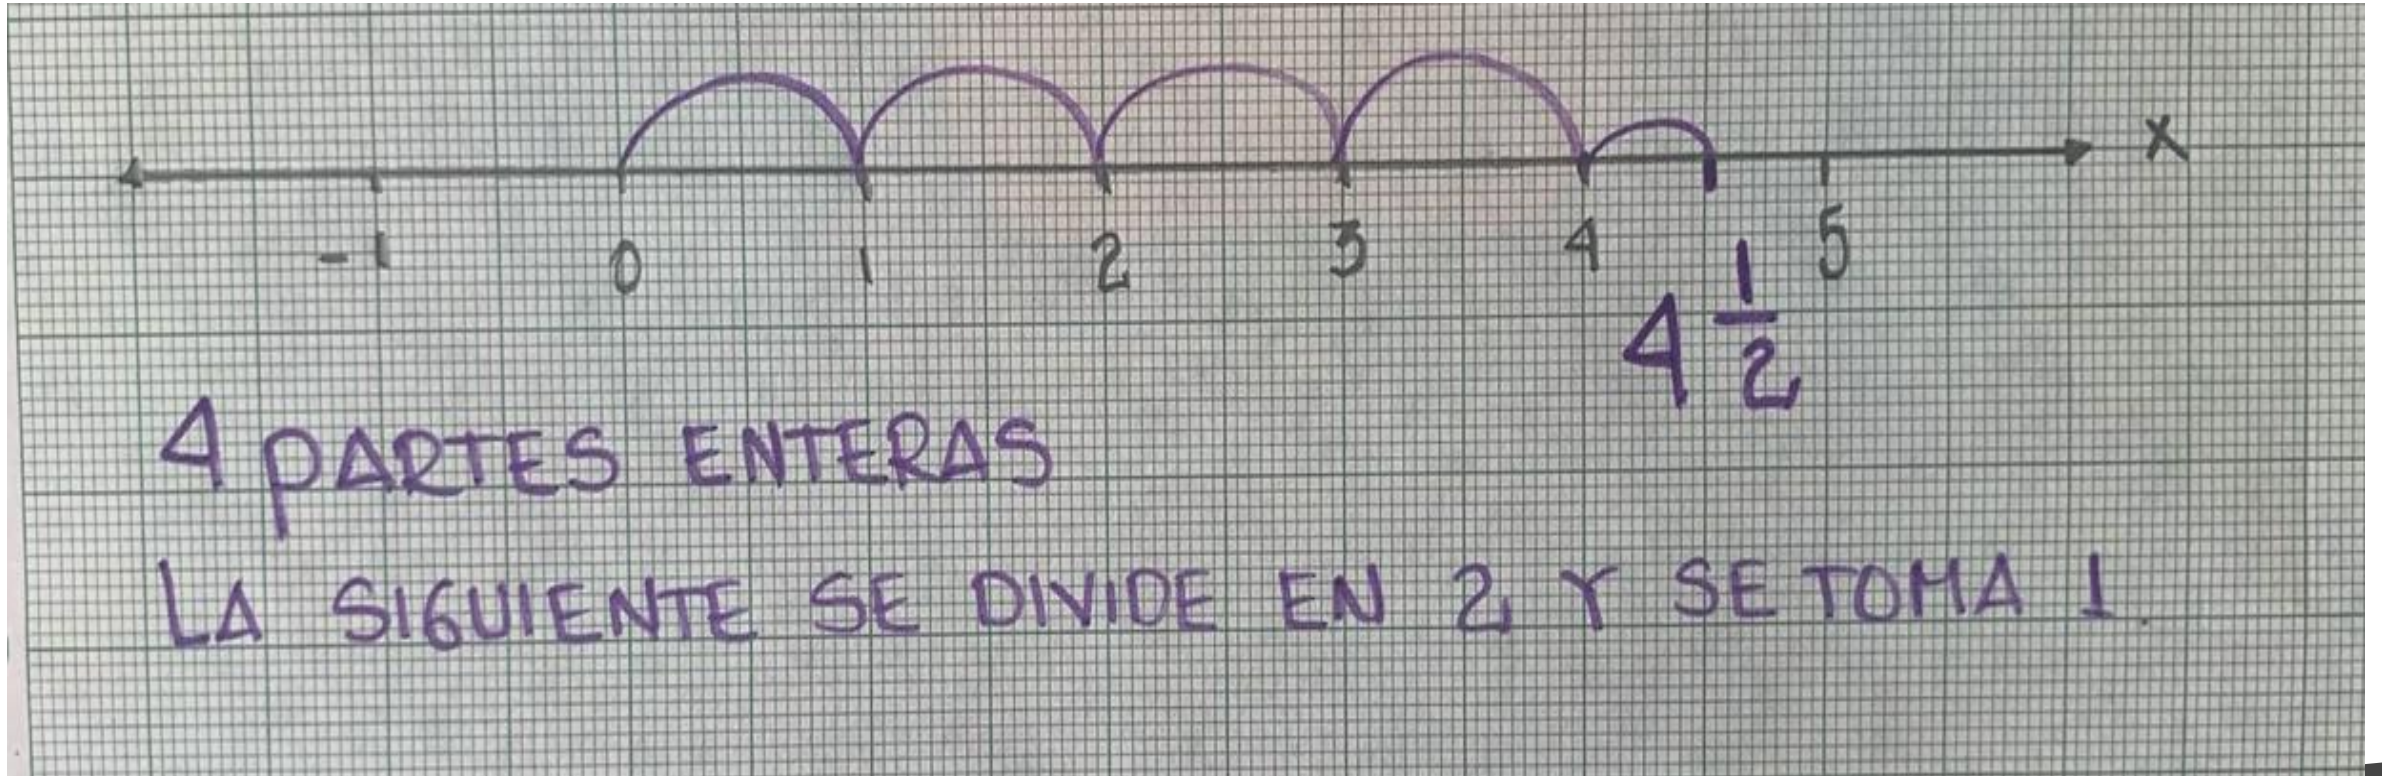 X
-1 0 1 2 3 4 5
4 1/2
4 PARTES ENTERAS
LA SIGUIENTE SE DIVIDE EN 2 Y SE TOMA 1.